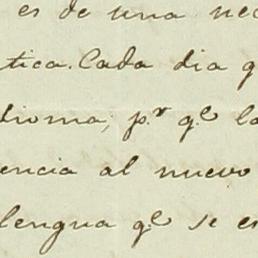 es de una nec
tica. Cada dia q
dioma, p.r q.e la
encia al nuevo
lengua q.e se es